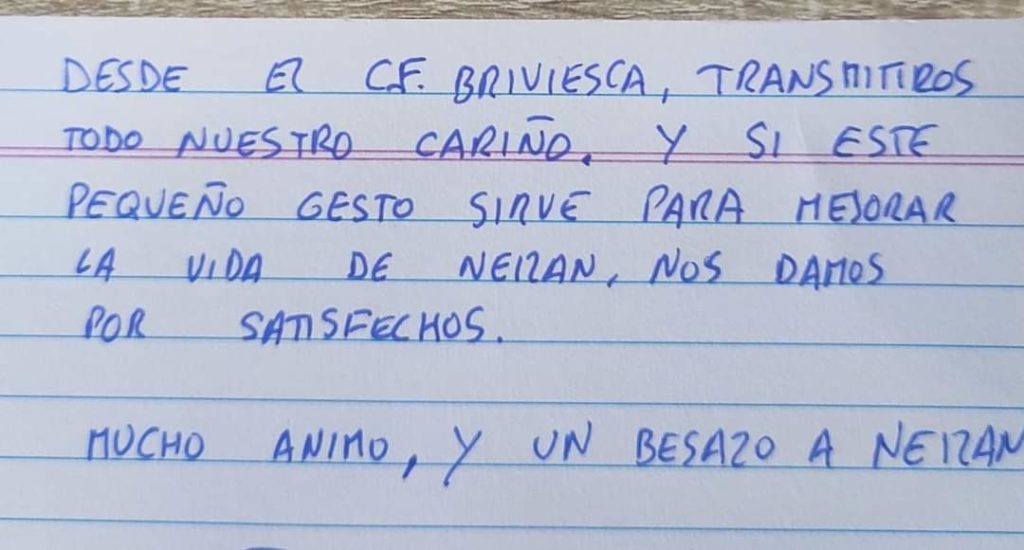 DESDE El C.F. BRIVIESCA, TRANSMITIROS
TODO NUESTRO CARIÑO. Y SI ESTE
PEQUEÑO GESTO SIRVE PARA MEJORAR
LA VIDA DE NEIZAN, NOS DAMOS
POR SATISFECHOS.
MUCHO ANIMO, Y UN BESAZO A NEIZAN